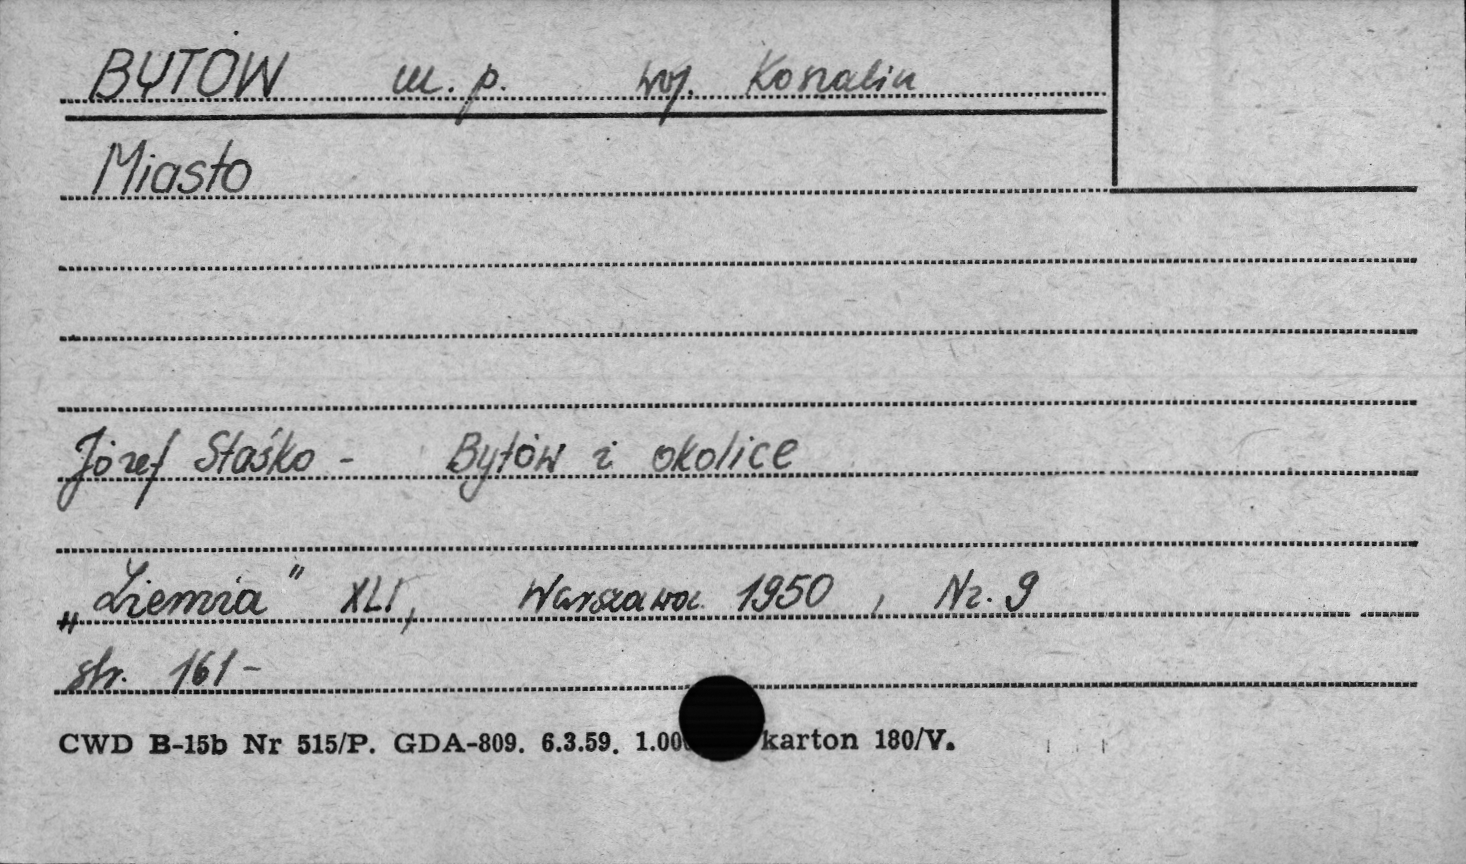 BYTÓW m. p. woj. Koszalin
Miasto
Józef Staśko - Bytów i okolice
„Ziemia" XLI, Warszawa 1950, Nr. 9
str. 161-
CWD B-15b Nr 515/P. GDA-809. 6.3.59. karton 180/V.